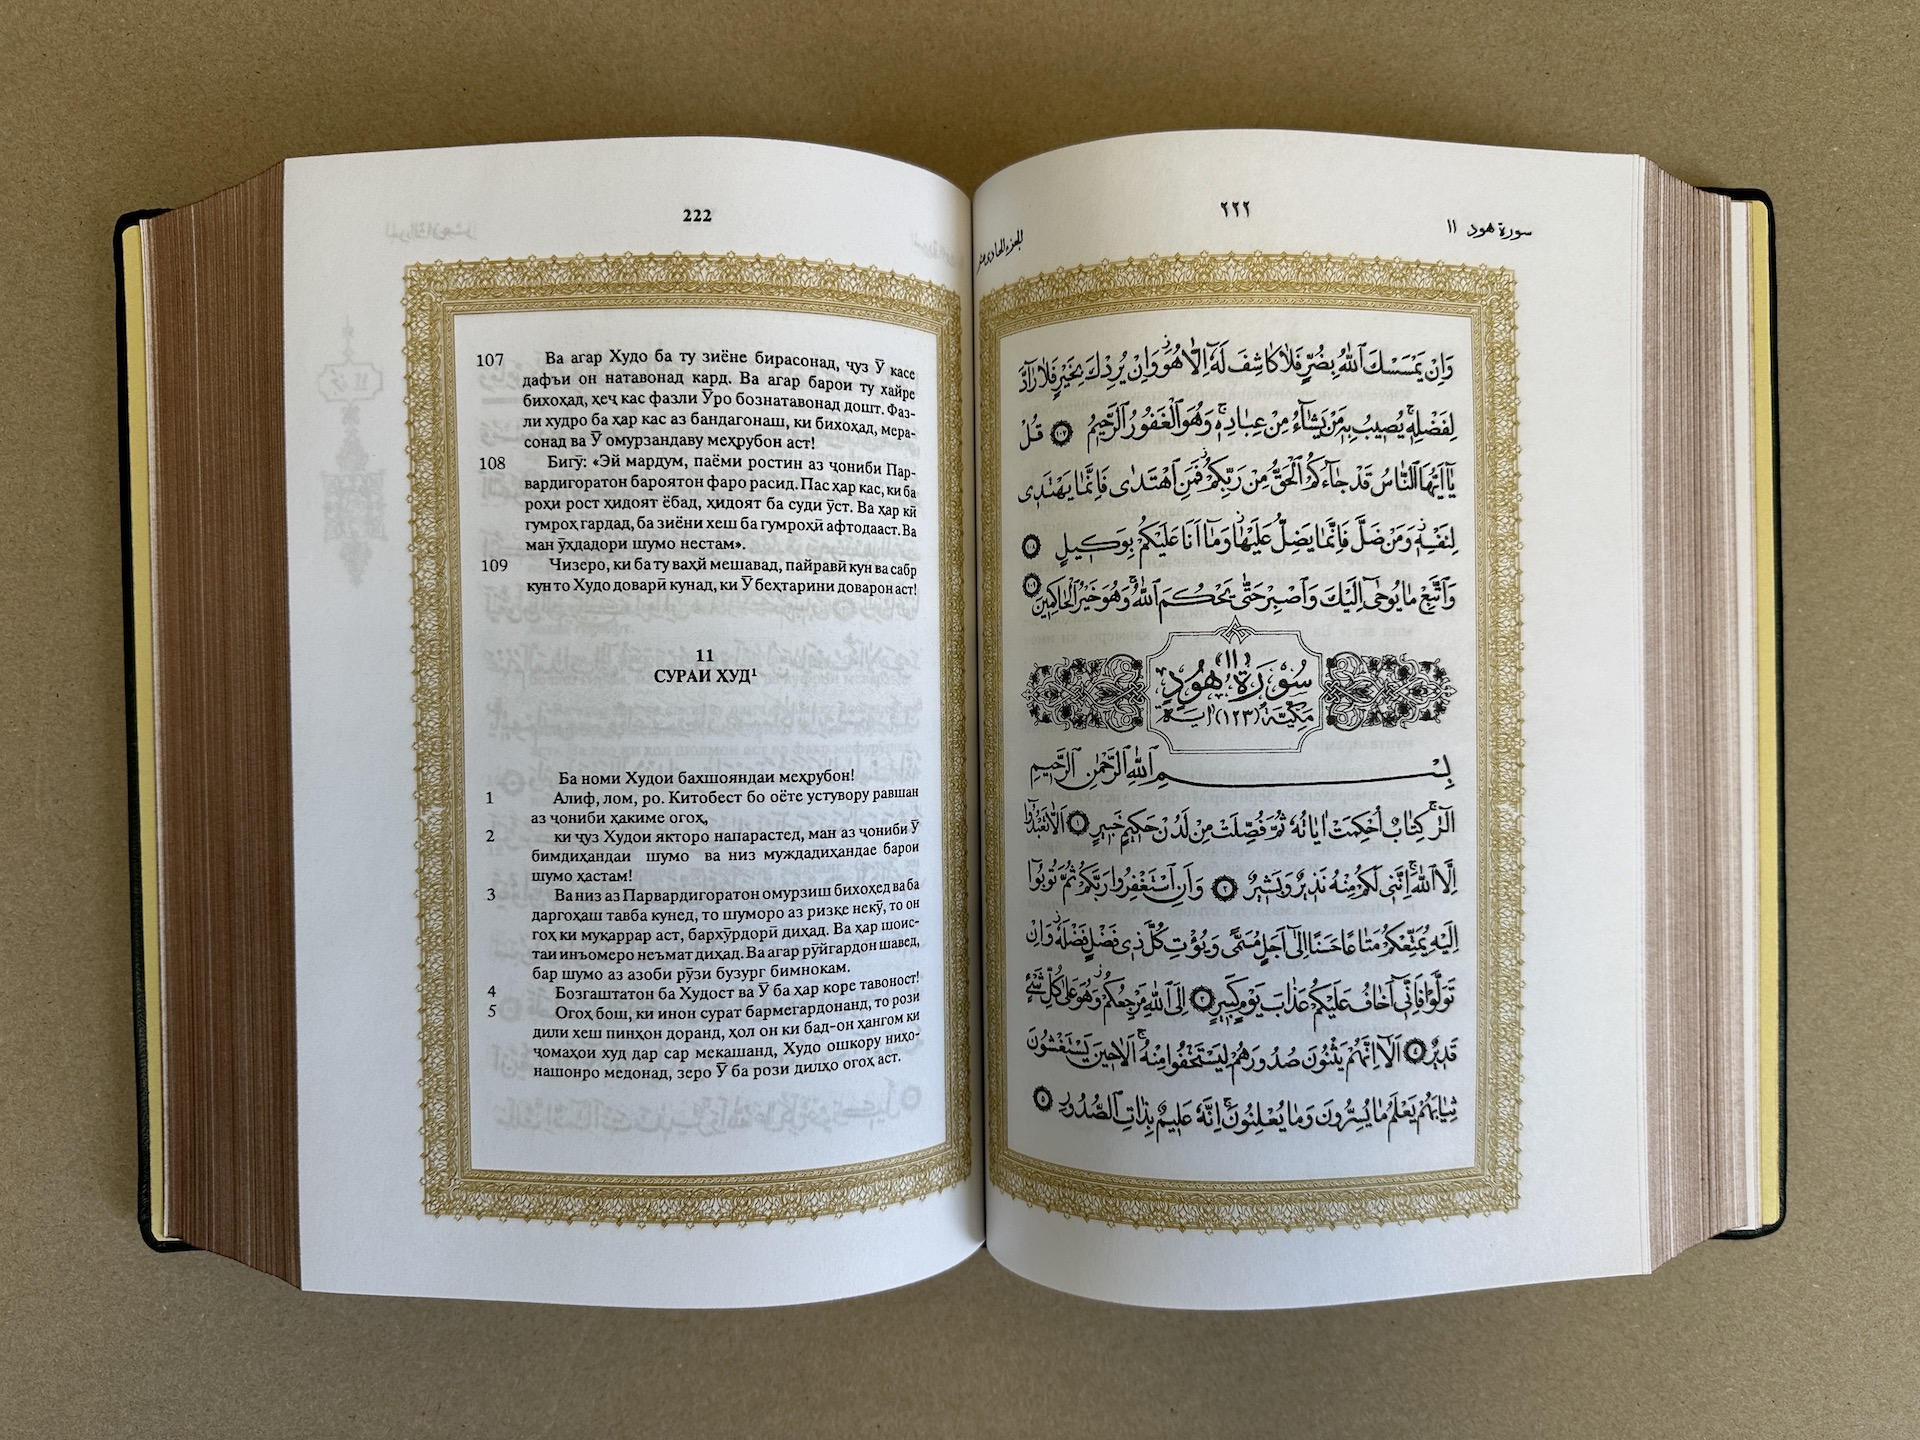 222
107 Ва агар Худо ба ту зиёне бирасонад, ҷуз Ӯ касе
дафъи он натавонад кард. Ва агар барои ту хайре
бихоҳад, ҳеҷ кас фазли Ӯро бознатавонад дошт. Фаз-
ли худро ба ҳар кас аз бандагонаш, ки бихоҳад, мера-
сонад ва Ӯ омурзандаву меҳрубон аст!
108 Бигӯ: «Эй мардум, паёми ростин аз ҷониби Пар-
вардигоратон бароятон фаро расид. Пас ҳар кас, ки ба
роҳи рост ҳидоят ёбад, ҳидоят ба суди ӯст. Ва ҳар кӣ
гумроҳ гардад, ба зиёни хеш ба гумроҳӣ афтодааст. Ва
ман ӯҳдадори шумо нестам».
109 Чизеро, ки ба ту ваҳй мешавад, пайравӣ кун ва сабр
кун то Худо доварӣ кунад, ки Ӯ беҳтарини доварон аст!
11
СУРАИ ҲУД¹
Ба номи Худои бахшояндаи меҳрубон!
1 Алиф, лом, ро. Китобест бо оёте устувору равшан
аз ҷониби ҳакиме огоҳ,
2 ки ҷуз Худои якторо напарастед, ман аз ҷониби Ӯ
бимдиҳандаи шумо ва низ муждадиҳандае барои
шумо ҳастам!
3 Ва низ аз Парвардигоратон омурзиш бихоҳед ва ба
даргоҳаш тавба кунед, то шуморо аз ризқе некӯ, то он
гоҳ ки муқаррар аст, бархӯрдорӣ диҳад. Ва ҳар шоис-
таи инъомеро неъмат диҳад. Ва агар рӯйгардон шавед,
бар шумо аз азоби рӯзи бузург бимнокам.
4 Бозгаштатон ба Худост ва Ӯ ба ҳар коре тавоност!
5 Огоҳ бош, ки инон сурат бармегардонанд, то рози
дили хеш пинҳон доранд, ҳол он ки бад-он ҳангом ки
ҷомаҳои худ дар сар мекашанд, Худо ошкору ниҳо-
нашонро медонад, зеро Ӯ ба рози дилҳо огоҳ аст.
سورة هود ١١
٢٢٢
الجزء الحادي عشر
وَاِنْ يَمْسَسْكَ ٱللّٰهُ بِضُرٍّ فَلَا كَاشِفَ لَهٗٓ اِلَّا هُوَ وَاِنْ يُرِدْكَ بِخَيْرٍ فَلَا رَآدَّ
لِفَضْلِهٖ يُصِيبُ بِهٖ مَنْ يَشَآءُ مِنْ عِبَادِهٖ وَهُوَ ٱلْغَفُورُ ٱلرَّحِيمُ ١٠٧ قُلْ
يَآ اَيُّهَا ٱلنَّاسُ قَدْ جَآءَكُمُ ٱلْحَقُّ مِنْ رَبِّكُمْ فَمَنِ ٱهْتَدٰى فَاِنَّمَا يَهْتَدِى
لِنَفْسِهٖ وَمَنْ ضَلَّ فَاِنَّمَا يَضِلُّ عَلَيْهَا وَمَآ اَنَا عَلَيْكُمْ بِوَكِيلٍ ١٠٨
وَٱتَّبِعْ مَا يُوحٰٓى اِلَيْكَ وَٱصْبِرْ حَتّٰى يَحْكُمَ ٱللّٰهُ وَهُوَ خَيْرُ ٱلْحَاكِمِينَ ١٠٩
(١١)
سُورَةُ هُودٍ
مَكِّيَّة (١٢٣) اية
بِسْمِ ٱللّٰهِ ٱلرَّحْمٰنِ ٱلرَّحِيمِ
الٓرٰ كِتَابٌ اُحْكِمَتْ اٰيَاتُهٗ ثُمَّ فُصِّلَتْ مِنْ لَدُنْ حَكِيمٍ خَبِيرٍ ١ اَلَّا تَعْبُدُوٓا
اِلَّا ٱللّٰهَ اِنَّنِى لَكُمْ مِنْهُ نَذِيرٌ وَبَشِيرٌ ٢ وَاَنِ ٱسْتَغْفِرُوا رَبَّكُمْ ثُمَّ تُوبُوٓا
اِلَيْهِ يُمَتِّعْكُمْ مَتَاعًا حَسَنًا اِلٰٓى اَجَلٍ مُسَمًّى وَيُؤْتِ كُلَّ ذِى فَضْلٍ فَضْلَهٗ وَاِنْ
تَوَلَّوْا فَاِنِّىٓ اَخَافُ عَلَيْكُمْ عَذَابَ يَوْمٍ كَبِيرٍ ٣ اِلَى ٱللّٰهِ مَرْجِعُكُمْ وَهُوَ عَلٰى كُلِّ شَىْءٍ
قَدِيرٌ ٤ اَلَآ اِنَّهُمْ يَثْنُونَ صُدُورَهُمْ لِيَسْتَخْفُوا مِنْهُ اَلَا حِينَ يَسْتَغْشُونَ
ثِيَابَهُمْ يَعْلَمُ مَا يُسِرُّونَ وَمَا يُعْلِنُونَ اِنَّهٗ عَلِيمٌ بِذَاتِ ٱلصُّدُورِ ٥